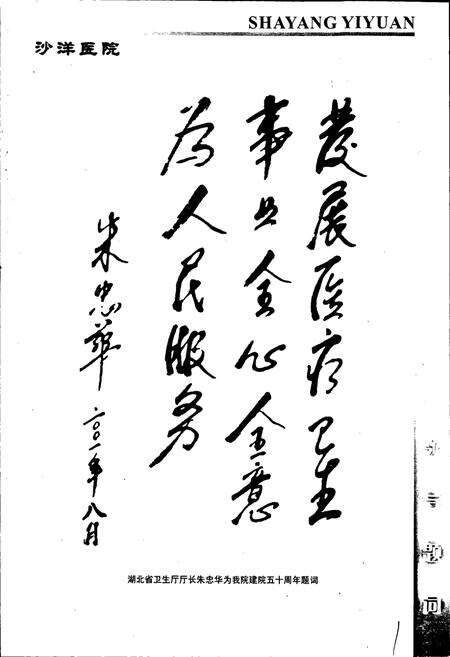 SHAYANG YIYUAN
沙洋医院
发展医疗卫生
事业全心全意
为人民服务
朱忠华
二00一年八月
湖北省卫生厅厅长朱忠华为我院建院五十周年题词